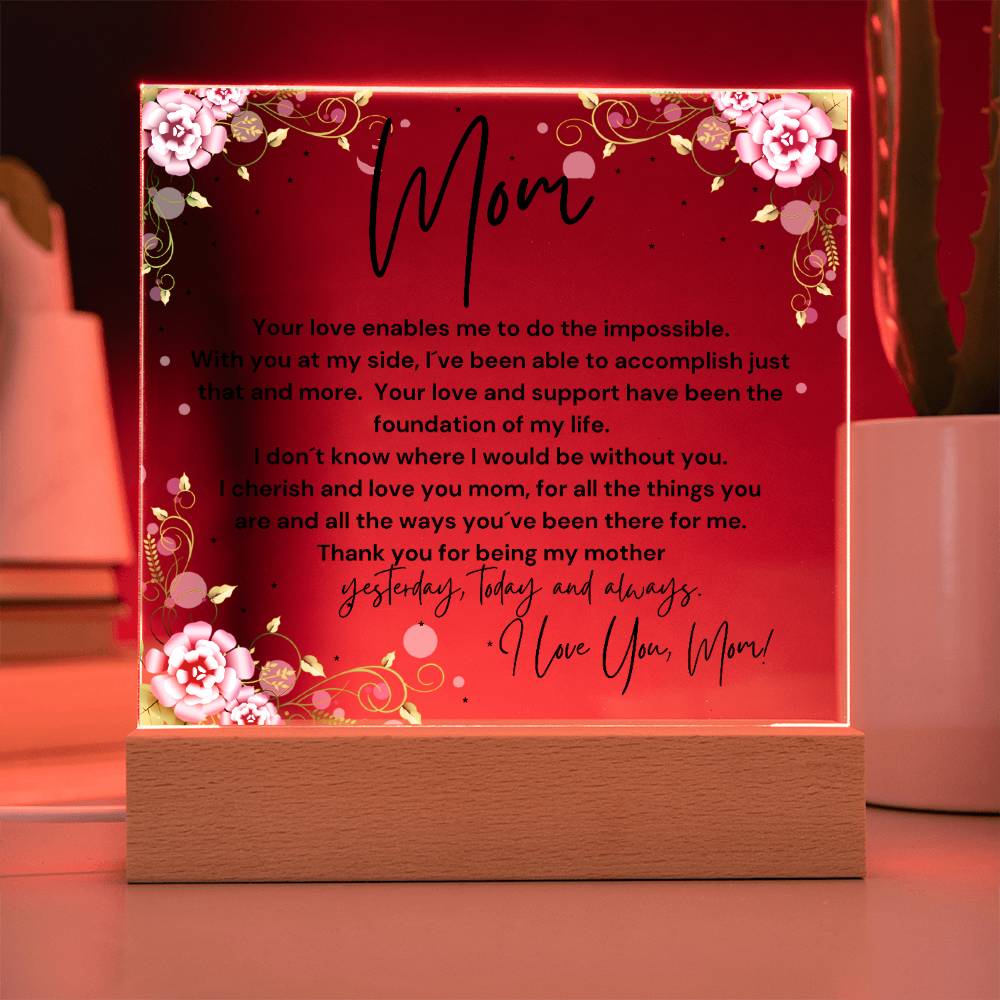 Mom
Your love enables me to do the impossible.
With you at my side, I´ve been able to accomplish just
that and more.  Your love and support have been the
foundation of my life.
I don´t know where I would be without you.
I cherish and love you mom, for all the things you
are and all the ways you´ve been there for me.
Thank you for being my mother
yesterday, today and always.
I Love You, Mom!